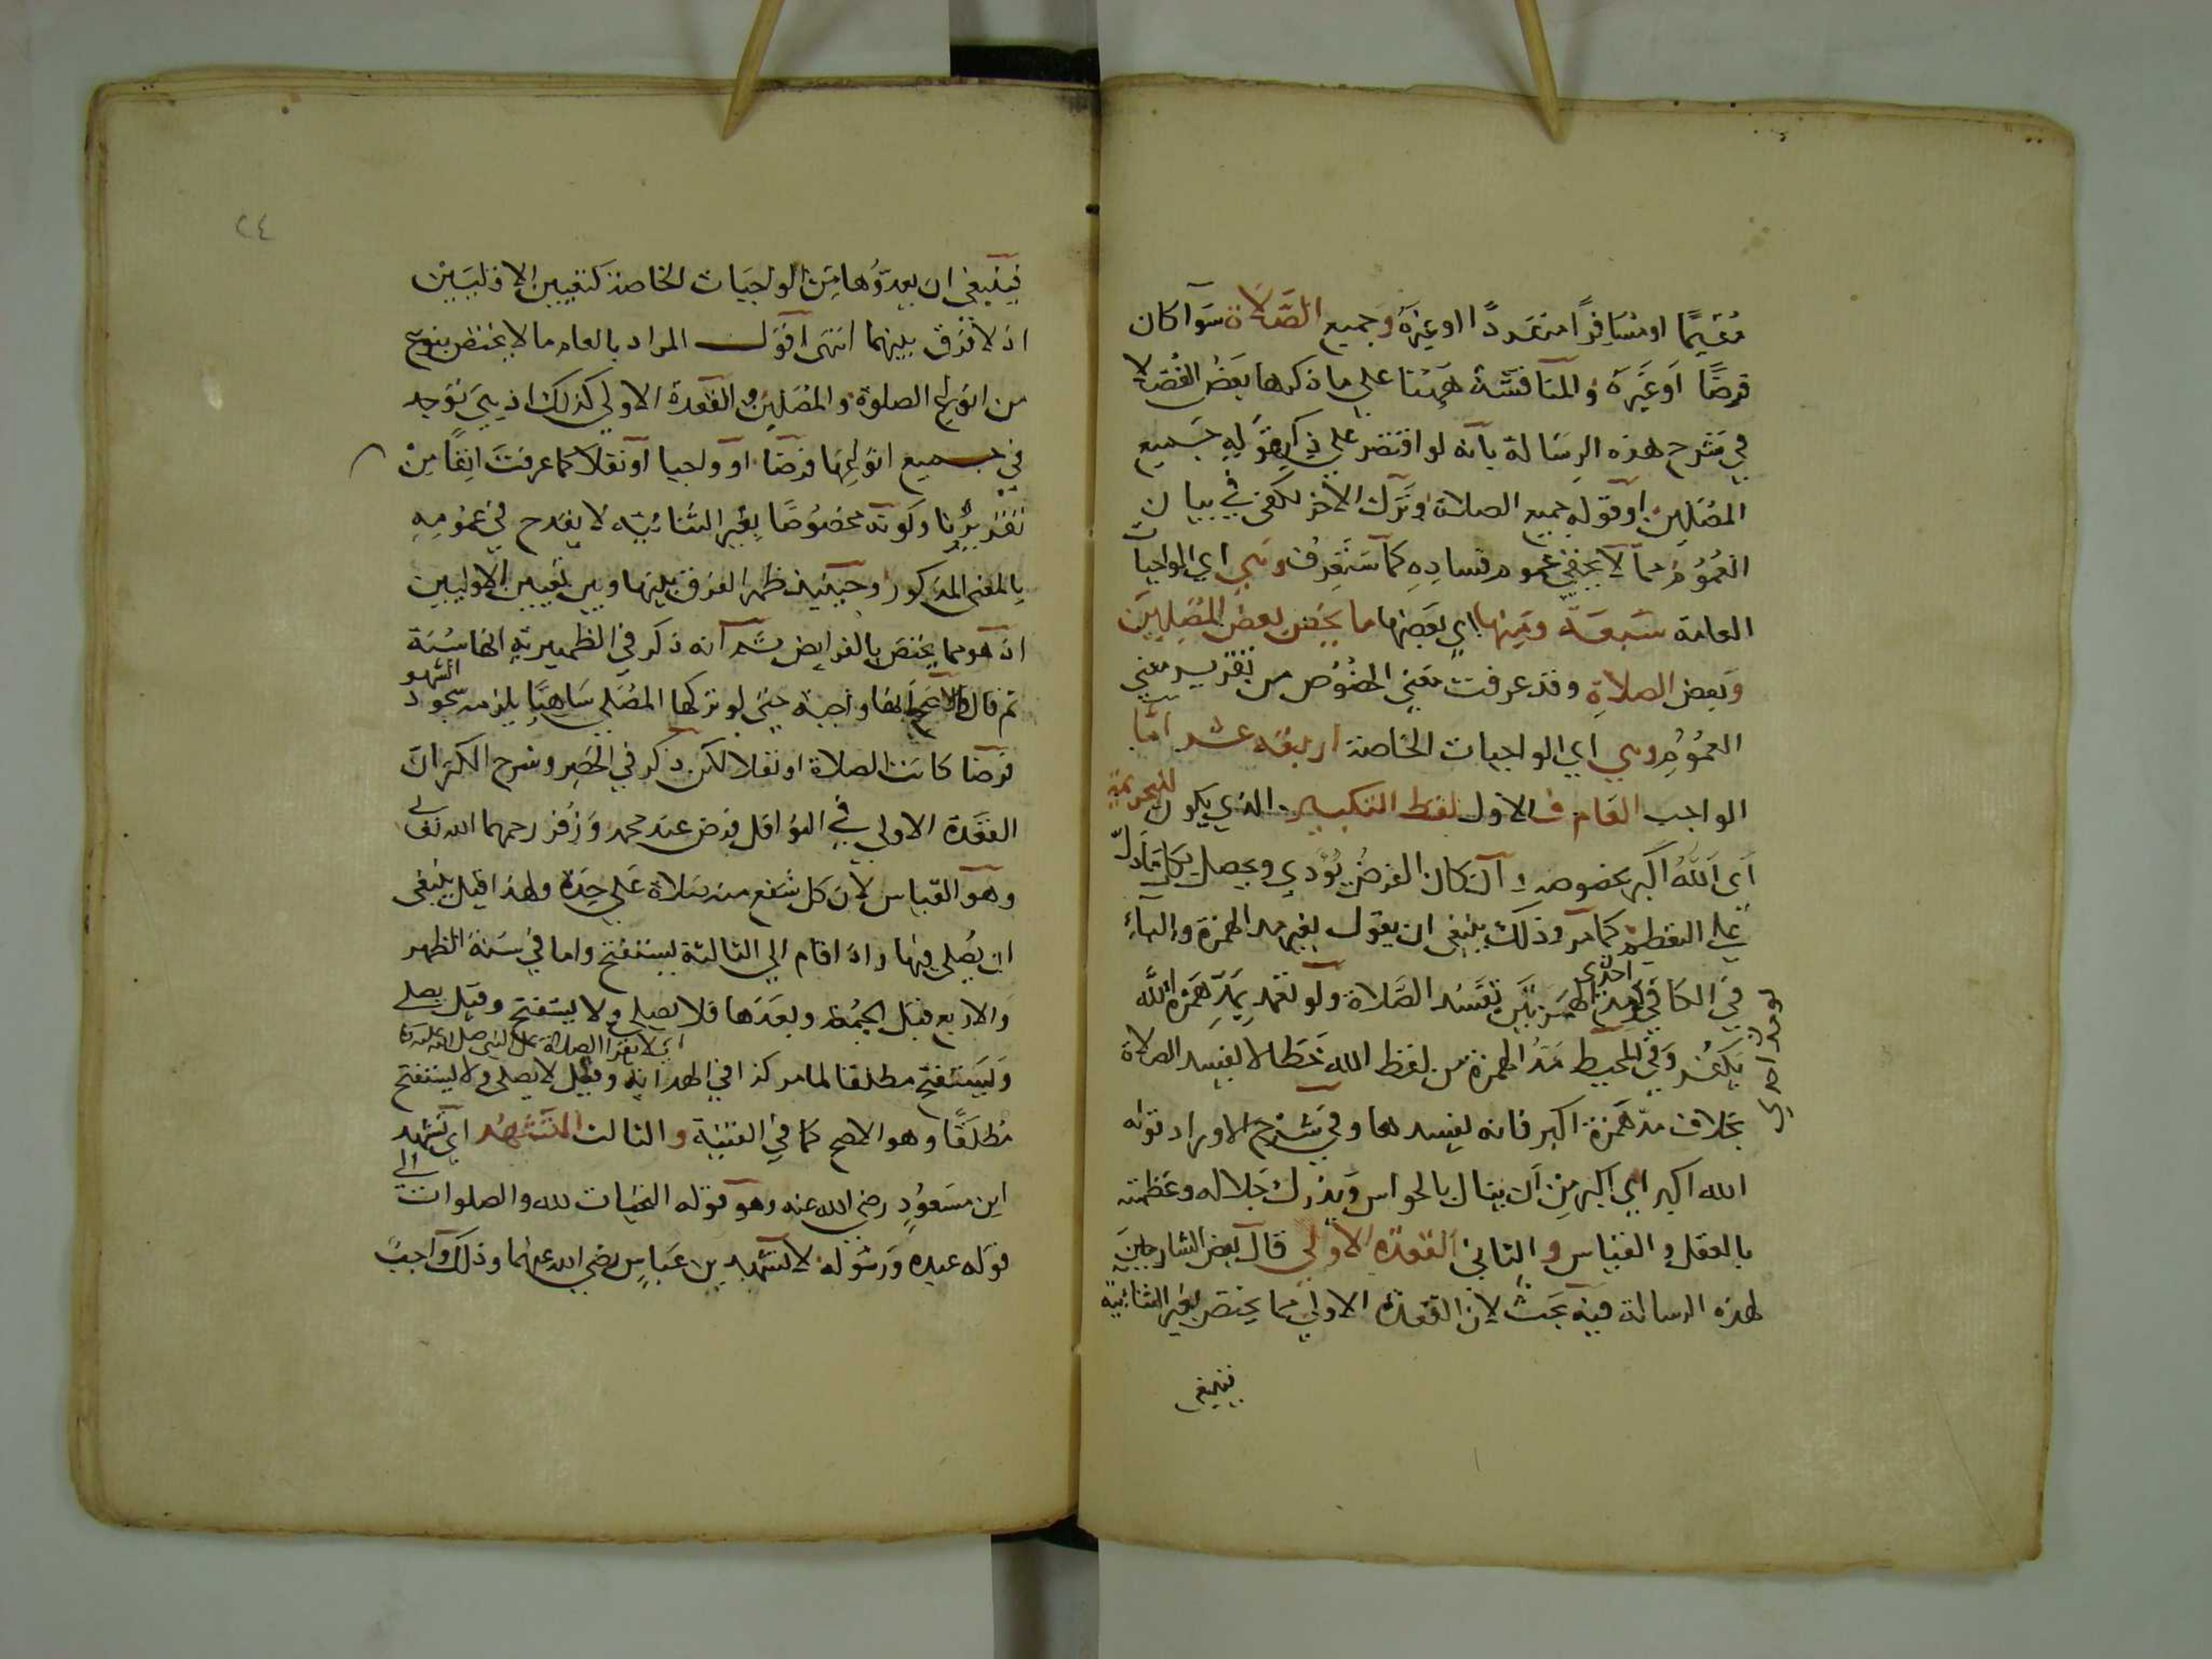 مقيما او مسافرا منفردا او غيره وجميع الصلاة سوآ كان
فرضا او غيره والمناقشة ههنا على ما ذكرها بعض الفضلا
في شرح هذه الرسالة بانه لو اقتصر على ذكر قوله جميع
المصلين او قوله جميع الصلاة وترك الاخر لكفى في بيان
العموم مما لا يخفى عموم فساده كما ستعرف وهي اي الواجبات
العامة سبعة ومنها اي بعضها ما يخص بعض المصلين
وبعض الصلاة وقد عرفت معنى الخصوص من تقرير معنى
العموم وهي اي الواجبات الخاصة اربعة عشر اما
الواجب العام فالاول لفظ التكبير الذي يكون للتحريمة
اي الله اكبر بخصوصه وان كان الفرض يؤدي ويحصل بكل ما دل
على التعظيم كما مر وذلك ينبغي ان يقول بغير مد الهمزة والبآء
في الكافي لو مد احدى الهمزتين تفسد الصلاة ولو تعمد بمد همزة الله
لو مد احدى
يكفر وفي المحيط مد الهمزة من لفظ الله خطا لا يفسد الصلاة
بخلاف مد همزة اكبر فانه يفسدها وفي شرح الاوراد قوله
الله اكبر اي اكبر من ان ينال بالحواس ويدرك جلاله وعظمته
بالعقل والقياس والثاني القعدة الاولى قال بعض الشارحين
لهذه الرسالة فيه بحث لان القعدة الاولى مما يختص بغير الثنائية
فينبغي
٢٤
فينبغي ان يعدوها من الواجبات الخاصة كتعيين الاوليين
اذ لا فرق بينهما انتهى اقول المراد بالعام ما لا يختص بنوع
من انواع الصلوة والمصلين والقعدة الاولى كذلك اذ هي توجد
في جميع انواعها فرضا او واجبا او نفلا كما عرفت انفا من
تقريرنا وكونه مخصوصا بغير الثنائية لا يقدح في عمومه
بالمعنى المذكور وحينئذ ظهر الفرق بينها وبين تعيين الاوليين
اذ هو مما يختص بالفرايض ثم انه ذكر في الظهيرية انها سنة
ثم قال والاصح انها واجبة حتى لو تركها المصلي ساهيا يلزمه سجود السهو
فرضا كانت الصلاة او نفلا لكن ذكر في الحصر وشرح الكنز ان
القعدة الاولى في النوافل فرض عند محمد وزفر رحمهما الله تعالى
وهو القياس لان كل شفع منه صلاة على حدة ولهذا قيل ينبغي
ان يصلي فيها واذا قام الى الثالثة يستفتح واما في سنة الظهر
والاربع قبل الجمعة وبعدها فلا يصلي ولا يستفتح وقيل يصلي
اي لا يقرا الصلاة على النبي صلى الله عليه
ويستفتح مطلقا لما مر كذا في الهداية وقيل لا يصلي ولا يستفتح
مطلقا وهو الاصح كما في القنية والثالث التشهد اي تشهد
ابن مسعود رضي الله عنه وهو قوله التحيات لله والصلوات الى
قوله عبده ورسوله لا تشهد بن عباس رضي الله عنهما وذلك واجب